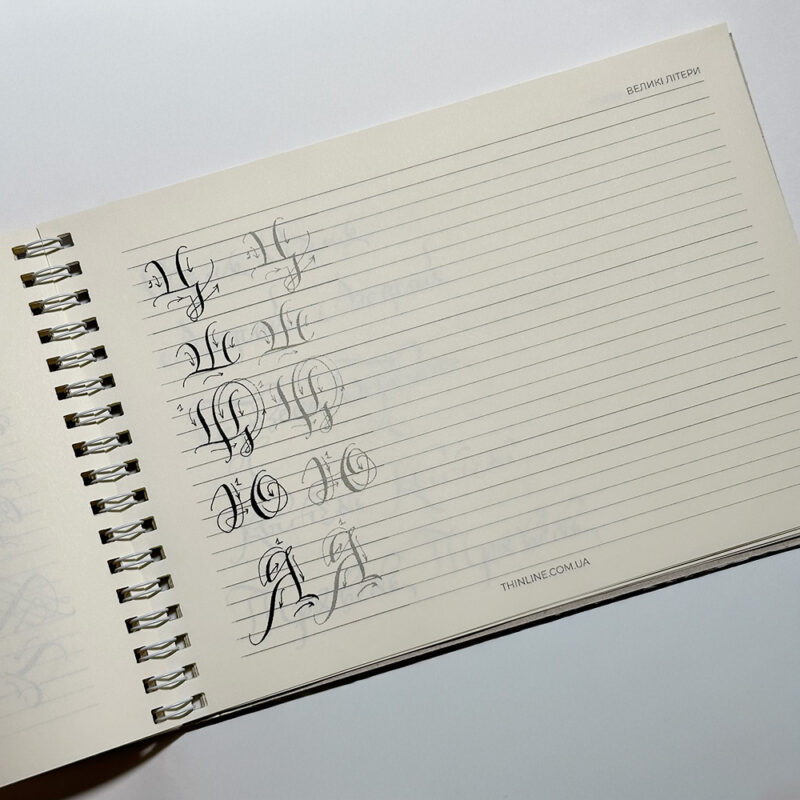 ВЕЛИКІ ЛІТЕРИ
Ц Ц
Ш Ш
Щ Щ
Ю Ю
Я Я
THINLINE.COM.UA